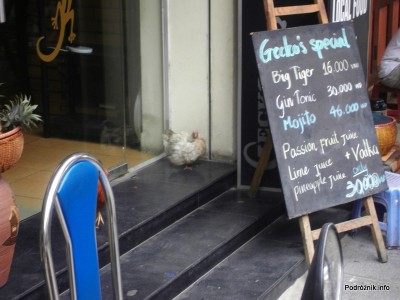 LOCAL FOOD
Gecko's special
Big Tiger 16.000 VND
Gin Tonic 30.000 VND
Mojito 46.000 VND
Passion fruit juice
Lime juice + Vodka
pineapple juice only
30.000
Podróżnik.info